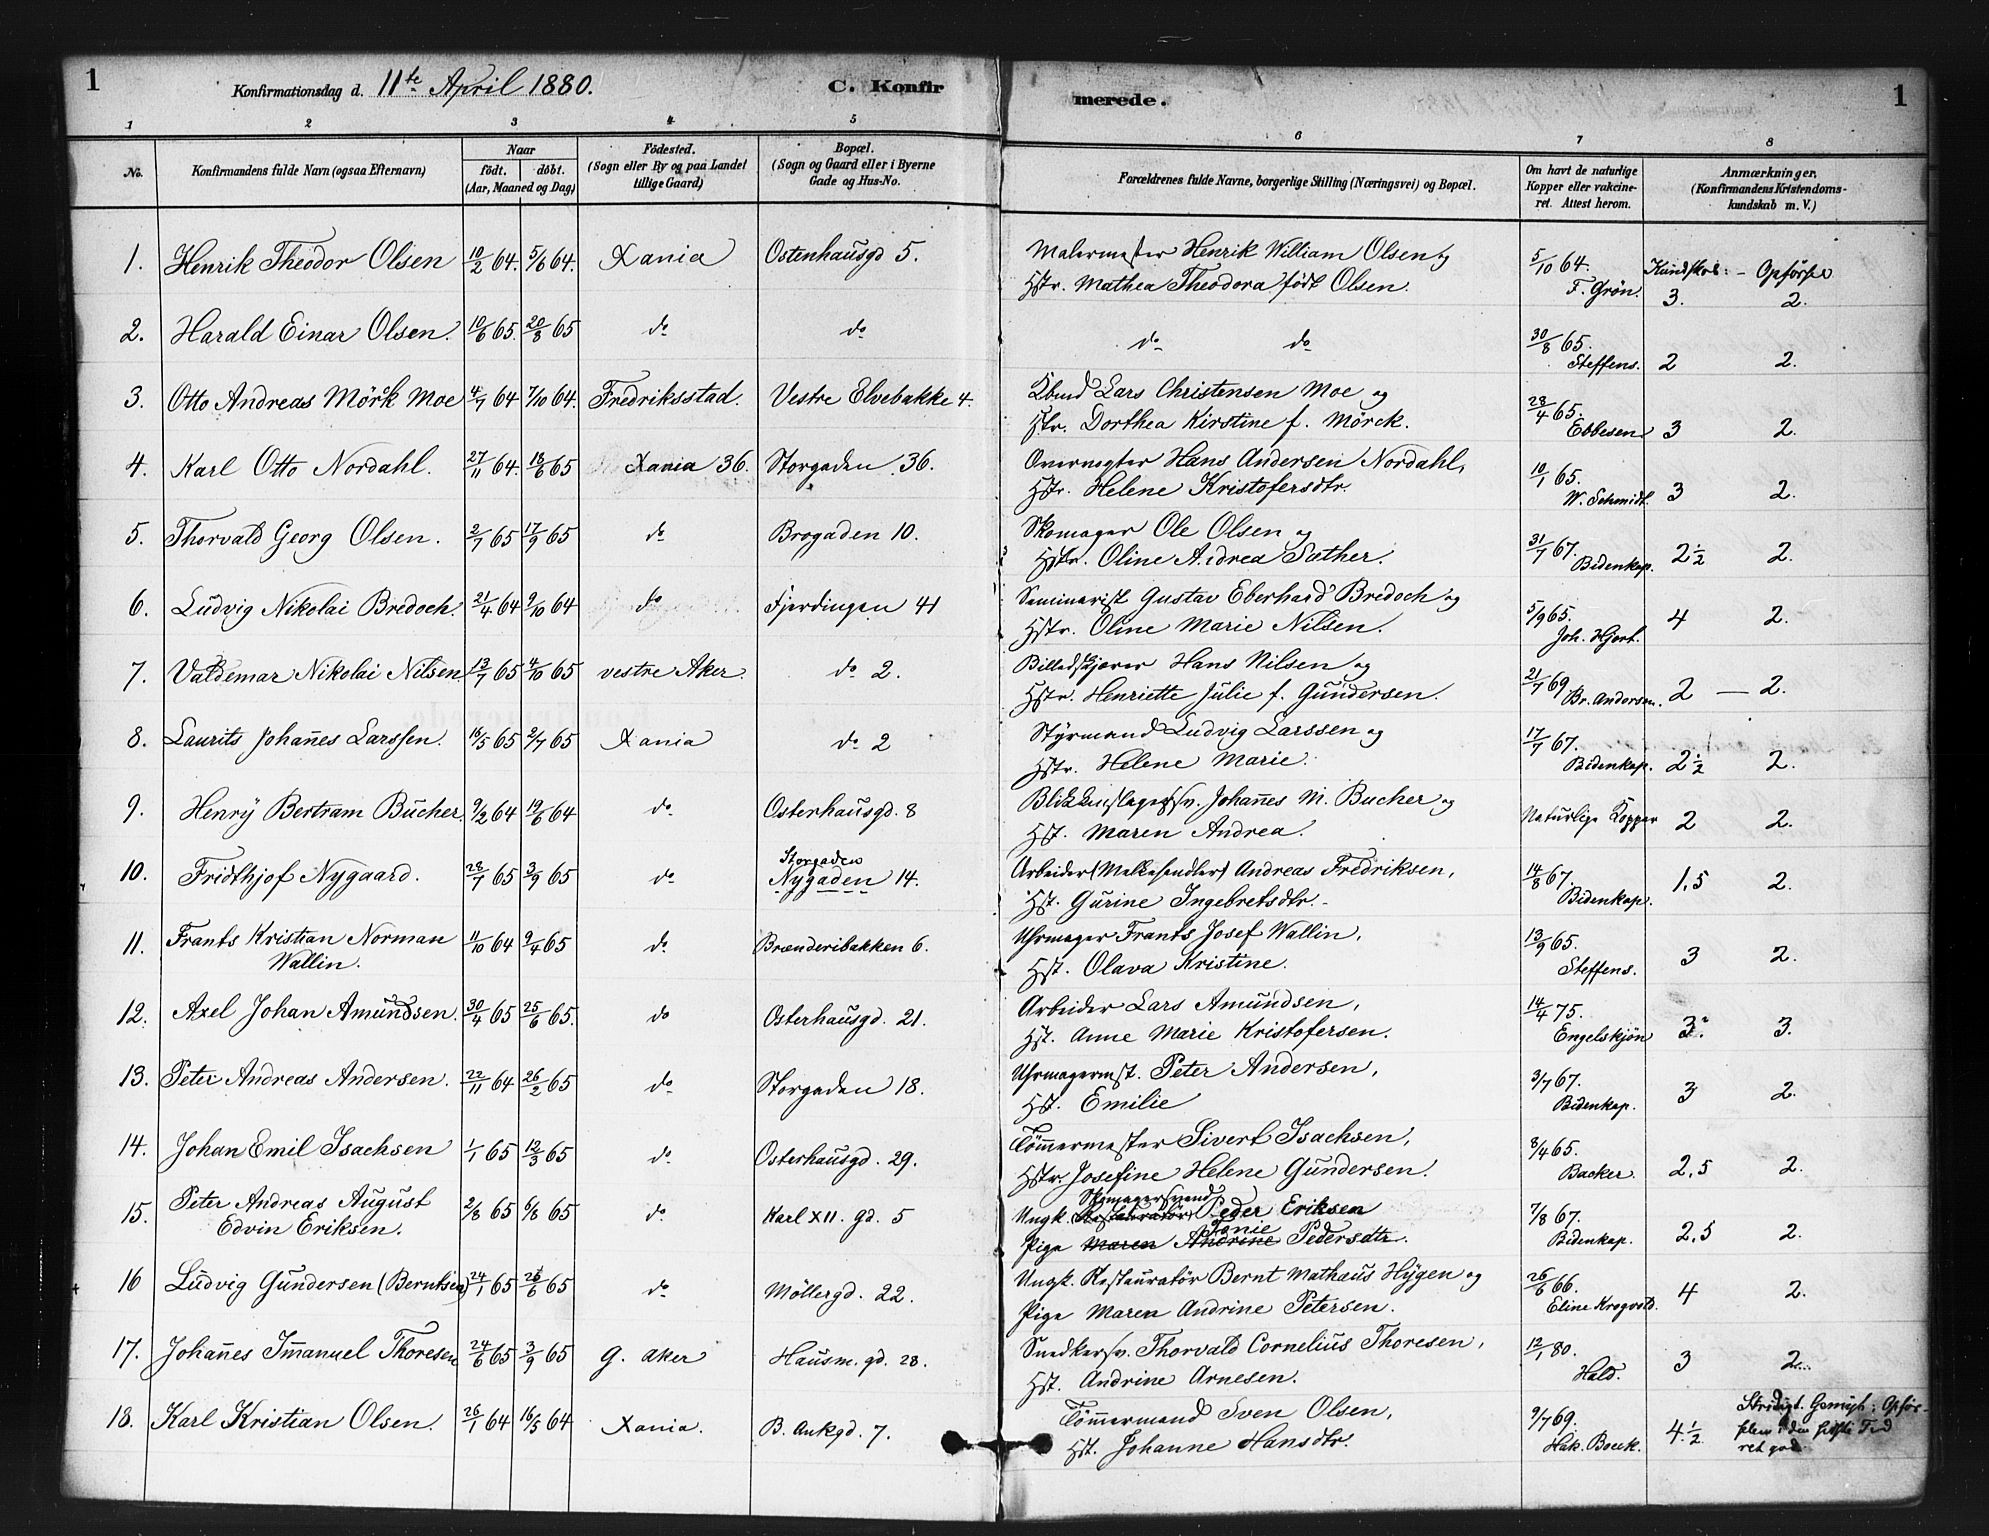 1 Konfirmationsdag d. 11te April 1880. C. Konfir merede. 1
1 2 3 4 5 6 7 8
No. Konfirmandens fulde Navn (ogsaa Efternavn) Naar födt. döbt. (Aar, Maaned og Dag) Födested. (Sogn eller By og paa Landet tillige Gaard) Bopæl. (Sogn og Gaard eller i Byerne Gade og Hus-No. Forældrenes fulde Navne, borgerlige Stilling (Næringsvei) og Bopæl. Om havt de naturlige Kopper eller vakcineret. Attest herom. Anmærkninger. (Konfirmandens Kristendomskundskab m. V.)
1. Henrik Theodor Olsen 10/2 64. 5/6 64. Xania Osterhausgd 5. Malermester Henrik William Olsen og 5/10 64. Kundskab: - Opförsel
Hstr. Mathea Theodora födt Olsen. F. Grön. 3. 2.
2. Harald Einar Olsen. 10/6 65. 20/8 65 do do do do 30/8 65.
Steffens. 2 2.
3. Otto Andreas Mörck Moe 4/7 64 7/10 64. Fredriksstad. Vestre Elvebakke 4. Kbmd Lars Christensen Moe og 28/4 65.
Hstr. Dorthea Kirstine f. Mörck. Ebbesen 3 2.
4. Karl Otto Nordahl. 27/11 64. 18/6 65 Xania 36. Storgaden 36. Overvogter Hans Andersen Nordahl, 10/1 65.
Hstr. Helene Kristofersdtr. W. Schmidt. 3 2.
5. Thorvald Georg Olsen. 2/7 65 17/9 65 do Brogaden 10. Skomager Ole Olsen og 31/7 67.
Hstr. Oline Andrea Sæther. Bidenkap. 2 1/2 2.
6. Ludvig Nikolai Bredoch. 21/4 64 9/10 64 do Fjerdingen 41 Seminarist Gustav Eberhard Bredoch og 5/9 65.
Hstr. Oline Marie Nilsen. Joh. Hjort. 4 2.
7. Valdemar Nikolai Nilsen 13/7 65 4/10 65 vestre Aker. do 2. Billedskjærer Hans Nilsen og 21/7 69
Hstr. Henriette Julie f. Gundersen. Br. Andersen. 2 — 2.
8. Laurits Johannes Larssen. 16/5 65 2/7 65 Xania do 2 Styrmand Ludvig Larssen og 17/7 67.
Hstr. Helene Marie. Bidenkap. 2 1/2 2.
9. Henry Bertram Bucher. 9/2 64 19/6 64 do Osterhausgd. 8 Blikkenslagersv. Johannes M. Bucher og Naturlige Kopper 2 2.
Hst. Maren Andrea.
10. Fridthjof Nygaard. 28/7 65 3/9 65 do Storgaden
Nygaden 14. Arbeider (Melkehandler) Andreas Fredriksen, 14/8 67.
Hst. Gurine Ingebretsdtr. Bidenkap. 1,5 2.
11. Frants Kristian Norman 11/10 64 9/4 65 do Brænderibakken 6. Uhrmager Frants Josef Wallin, 13/9 65.
Wallin. Hst. Olava Kristine. Steffens. 3 2.
12. Axel Johan Amundsen. 30/4 65 25/6 65. do Osterhausgd. 21. Arbeider Lars Amundsen, 14/4 75.
Hst. Anne Marie Kristofersen. Engelskjön 3. 3.
13. Peter Andreas Andersen. 22/11 64 26/2 65 do Storgaden 18. Uhrmagermst. Peter Andersen, 3/7 67.
Hst. Emilie Bidenkap. 3 2.
14. Johan Emil Isachsen 1/1 65 12/3 65 do Osterhausgd. 29. Tömmermester Sivert Isachsen, 8/4 65.
Hstr. Josefine Helene Gundersen. Backer. 2,5 2.
15. Peter Andreas August 2/8 65 6/8 65 do Karl XII. gd. 5 Ungk. Restauratör Skomagersvend Peder Eriksen 7/8 67.
Edvin Eriksen. Pige Maren Andrine Pedersdtr. Bidenkap. 2,5 2.
16 Ludvig Gundersen (Berntsen) 24/1 65 25/6 65 do Möllergd. 22. Ungk. Restauratör Bernt Mathæus Hygen og 26/6 66.
Pige Maren Andrine Petersen. Eline Krogvold. 4 2.
17. Johannes Imanuel Thoresen 24/6 65 3/9 65 g. Aker Hausm. gd. 28. Snedkersv. Thorvald Cornelius Thoresen, 12/1 80.
Hst. Andrine Arnesen. Hald. 3 2
18. Karl Kristian Olsen. 26/1 64 16/5 64 Xania. B. Ankgd. 7. Tömmermand Sven Olsen, 9/7 69.
Hst. Johanne Hansdtr. Hak. Boeck. 4 1/2 Stridigt Gemyt; Opförselen i den sidste Tid
ret god.